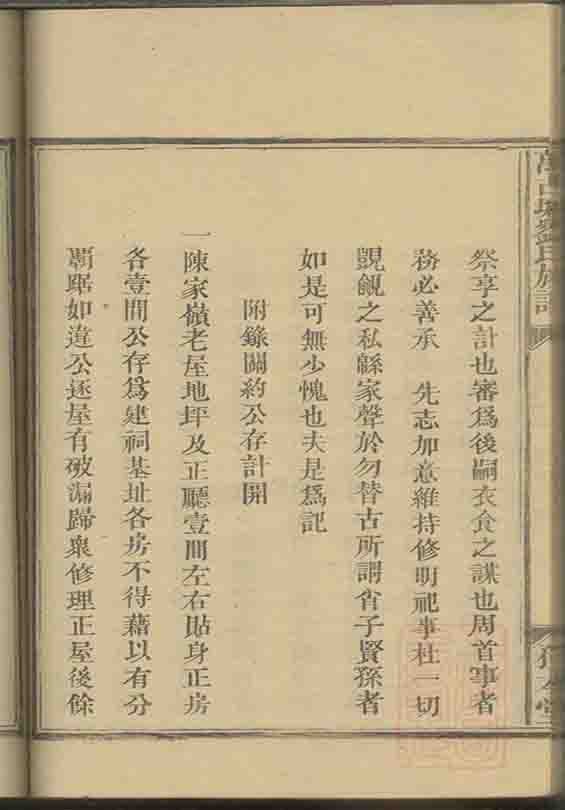 祭享之計也審爲後嗣衣食之謀也周首事者
務必善承　先志加意維持修明祀事杜一切
覬覦之私緜家聲於勿替古所謂肖子賢孫者
如是可無少愧也夫是爲記
附錄關約公存計開
一陳家嶺老屋地坪及正廳壹間左右貼身正房
各壹間公存爲建祠基址各房不得藉以有分
霸踞如違公逐屋有破漏歸衆修理正屋後餘